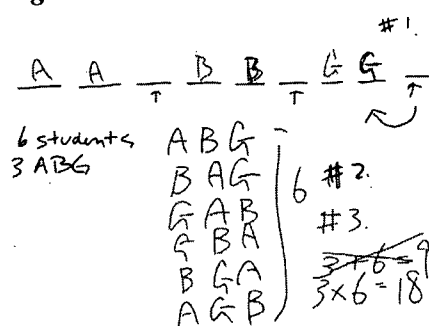 #1.
A A _ B B _ G G _
6 students
3 ABG
A B G
B A G
G A B
G B A
B G A
A G B
6
#2.
#3.
3+6=9
3×6=18